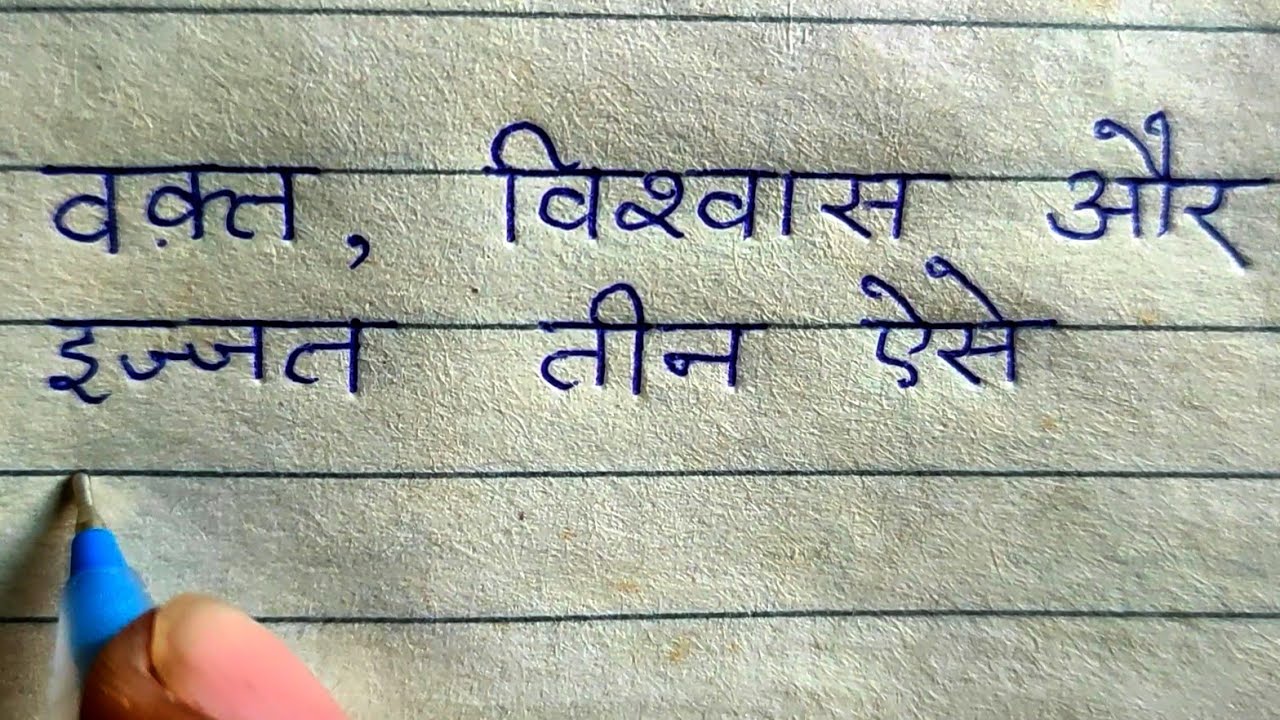 वक़्त, विश्वास और
इज्जत तीन ऐसे